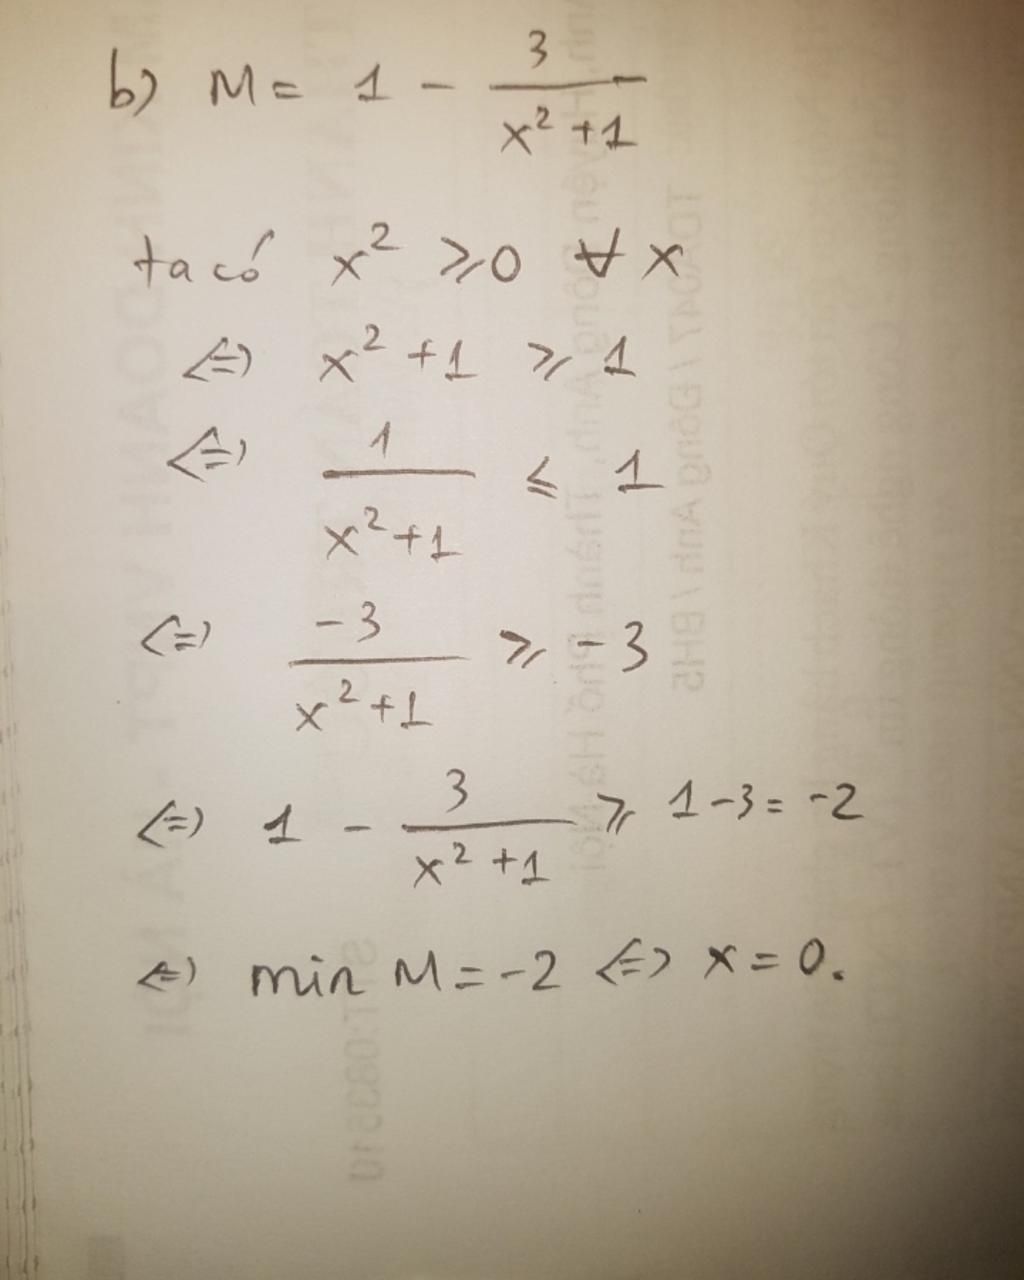 b) M = 1 - 3/(x² + 1)
ta có x² ⩾ 0 ∀ x
<=> x² + 1 ⩾ 1
<=> 1/(x² + 1) ⩽ 1
<=> -3/(x² + 1) ⩾ -3
<=> 1 - 3/(x² + 1) ⩾ 1 - 3 = -2
<=> min M = -2 <=> x = 0.